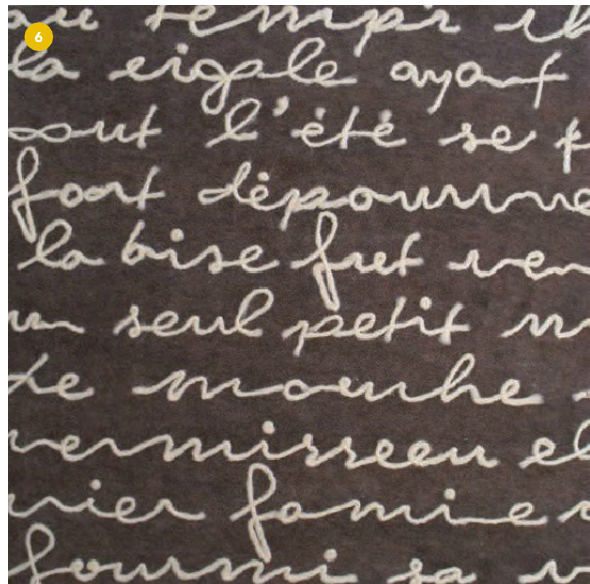 6
au temps
la cigale ayant
tout l'été se
fort dépourvue
la bise fut ven
un seul petit m
de mouche
vermisseau el
crier famine
fourmi sa v